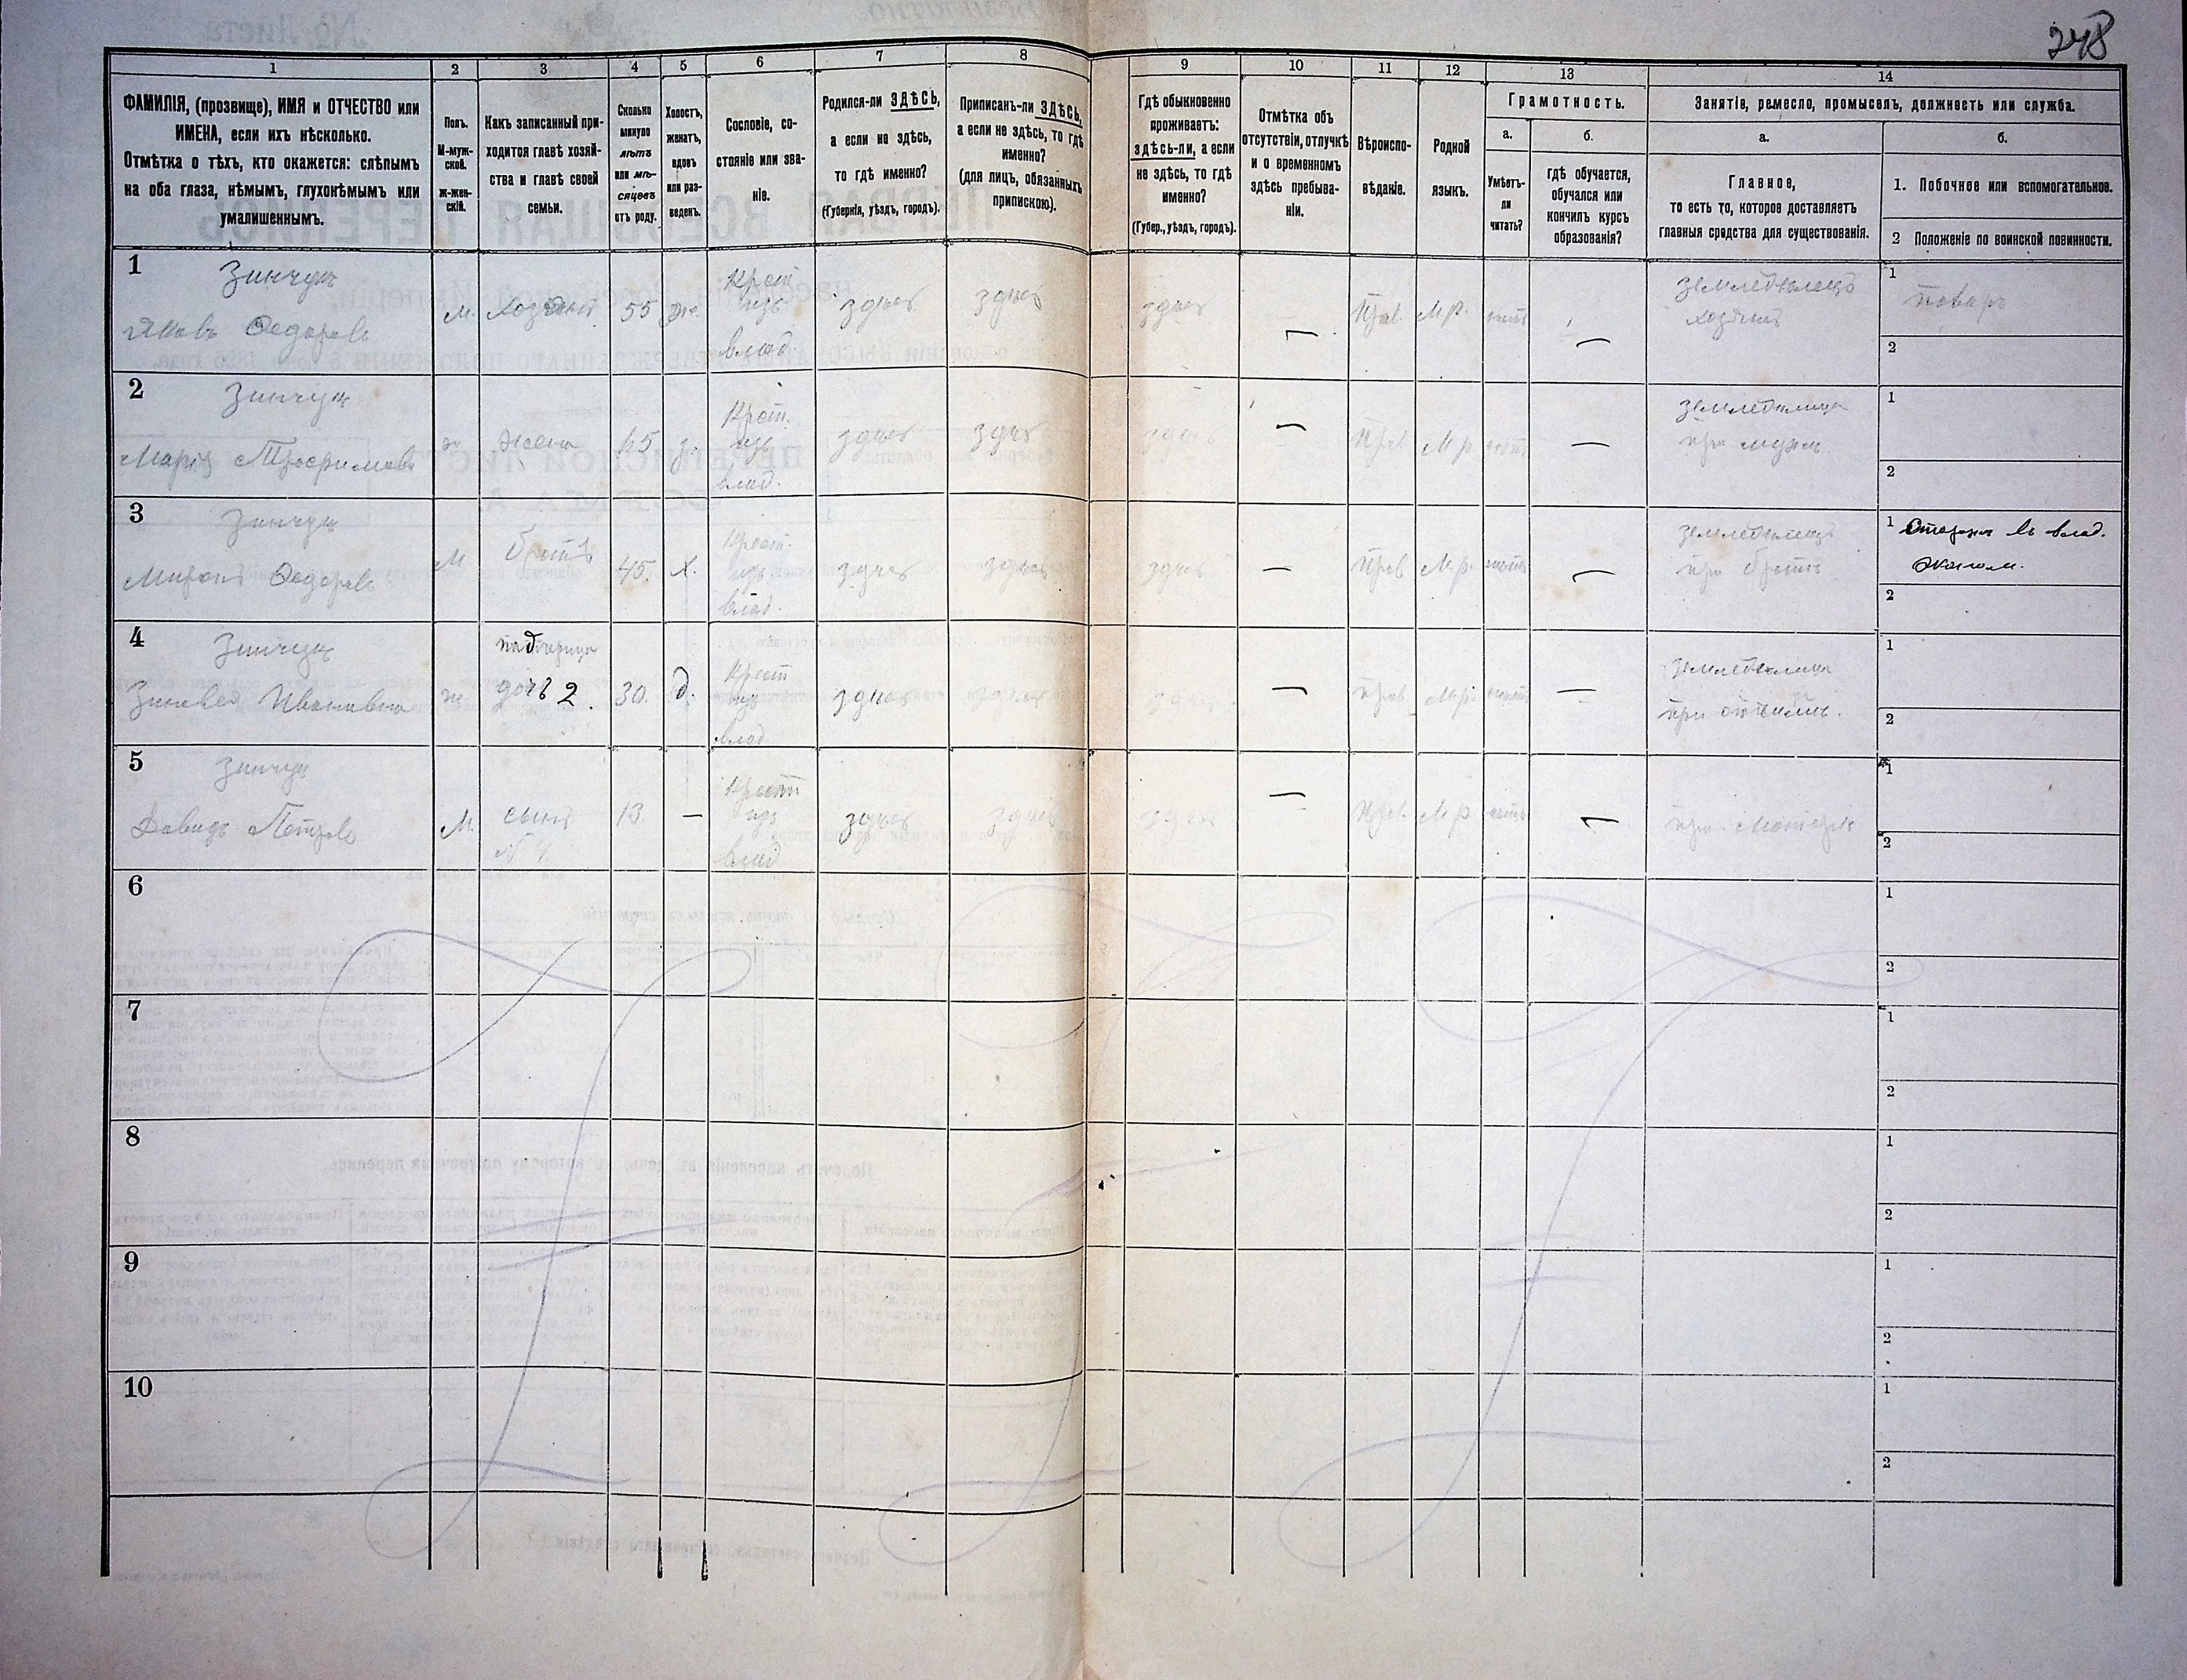 248
1
2
3
4
5
6
7
8
9
10
11
12
13
14
ФАМИЛІЯ, (прозвище), ИМЯ и ОТЧЕСТВО или
ИМЕНА, если ихъ нѣсколько.
Отмѣтка о тѣхъ, кто окажется: слѣпымъ
на оба глаза, нѣмымъ, глухонѣмымъ или
умалишеннымъ.
Полъ.
М-муж-
ской.
ж-жен-
скій.
Какъ записанный при-
ходится главѣ хозяй-
ства и главѣ своей
семьи.
Сколько
минуло
лѣтъ
или мѣ-
сяцевъ
отъ роду.
Холостъ,
женатъ,
вдовъ
или раз-
веденъ.
Сословіе, со-
стояніе или зва-
ніе.
Родился-ли ЗДѢСЬ,
а если не здѣсь,
то гдѣ именно?
(Губернія, уѣздъ, городъ).
Приписанъ-ли ЗДѢСЬ,
а если не здѣсь, то гдѣ
именно?
(для лицъ, обязанныхъ
припискою).
Гдѣ обыкновенно
проживаетъ:
здѣсь-ли, а если
не здѣсь, то гдѣ
именно?
(Губер., уѣздъ, городъ).
Отмѣтка объ
отсутствіи, отлучкѣ
и о временномъ
здѣсь пребыва-
ніи.
Вѣроиспо-
вѣданіе.
Родной
языкъ.
Грамотность.
а.
Умѣетъ-
ли
читать?
б.
гдѣ обучается,
обучался или
кончилъ курсъ
образованія?
Занятіе, ремесло, промыселъ, должность или служба.
а.
Главное,
то есть то, которое доставляетъ
главныя средства для существованія.
б.
1. Побочное или вспомогательное.
2 Положеніе по воинской повинности.
1
Зинчук
Яковъ Федоровъ
М.
хозяинъ
55
же.
Крест
изъ
влад.
здесь
здесь
здесь
—
Прав.
М.р.
нетъ
—
земледелецъ
хозяинъ
1
поваръ
2
2
Зинчук
Мария Трофимова
ж
жена
45
з.
Крест.
изъ
влад.
здесь
здесь
здесь
—
Прав
М.р
нетъ
—
земледелица
при муже
1
2
3
Зинчук
Миронъ Федоровъ
М
братъ
45.
х.
Крест.
изъ
влад.
здесь
здесь
здесь
—
Прав
М.р.
нетъ
—
земледелецъ
при братѣ
1 Сторожъ въ влад.
эконом.
2
4
Зинчук
Ивановна
ж
падчерица
дочь 2.
30.
д.
Крест
изъ
влад
здесь
здесь
здесь
—
прав
М.р.
нетъ
—
земледелица
при отчиме.
1
2
5
Зинчук
Давидъ Петровъ
М.
сынъ
№ 4
13.
—
Крест
изъ
влад
здесь
здесь
здесь
—
Прав.
М.р
нетъ
—
при матери
1
2
6
1
2
7
1
2
8
1
2
9
1
2
10
1
2